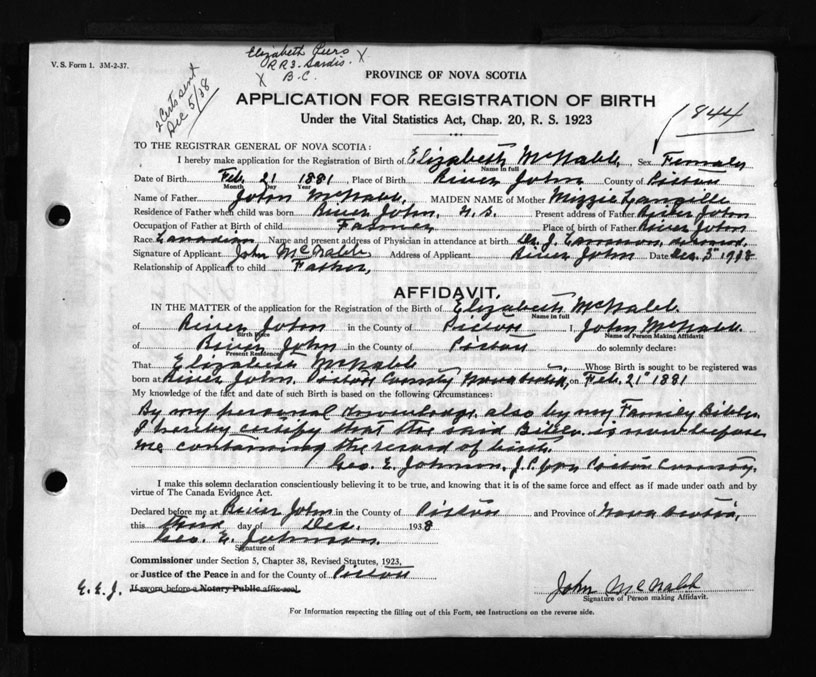 V. S. Form 1. 3M-2-37.
Elizabeth
R R 3. Sardis.
B. C.
2 Certs sent
Dec 5/38
PROVINCE OF NOVA SCOTIA
APPLICATION FOR REGISTRATION OF BIRTH
Under the Vital Statistics Act, Chap. 20, R. S. 1923
1844
TO THE REGISTRAR GENERAL OF NOVA SCOTIA:
I hereby make application for the Registration of Birth of Elizabeth McNabb, Sex Female
Name in full
Date of Birth Feb 21 1881, Place of Birth River John County of Pictou
Month Day Year
Name of Father John McNabb, MAIDEN NAME of Mother Mizzie Langille
Residence of Father when child was born River John, N.S. Present address of Father River John
Occupation of Father at Birth of child Farmer Place of birth of Father River John
Race Canadian Name and present address of Physician in attendance at birth Dr. J.
Signature of Applicant John McNabb Address of Applicant River John Date Dec. 3rd 1938
Relationship of Applicant to child Father,
AFFIDAVIT.
IN THE MATTER of the application for the Registration of the Birth of Elizabeth McNabb.
Name in full
of River John in the County of Pictou I, John McNabb
Birth Place Name of Person Making Affidavit
of River John in the County of Pictou do solemnly declare:
Present Residence
That Elizabeth McNabb Whose Birth is sought to be registered was
born at River John, Pictou County Nova Scotia, on Feb. 21st 1881
My knowledge of the fact and date of such Birth is based on the following Circumstances:
By my personal knowledge, also by my Family Bible.
I hereby certify that the said Bible is now before
me containing the record of birth.
Geo. E. Johnson, J.P. for Pictou County.
I make this solemn declaration conscientiously believing it to be true, and knowing that it is of the same force and effect as if made under oath and by
virtue of The Canada Evidence Act.
Declared before me at River John in the County of Pictou and Province of Nova Scotia,
this third day of Dec. 1938
Geo. E. Johnson.
Signature of
Commissioner under Section 5, Chapter 38, Revised Statutes, 1923,
or Justice of the Peace in and for the County of Pictou
G. E. J. If sworn before a Notary Public affix seal.
John McNabb
Signature of Person making Affidavit.
For Information respecting the filling out of this Form, see Instructions on the reverse side.